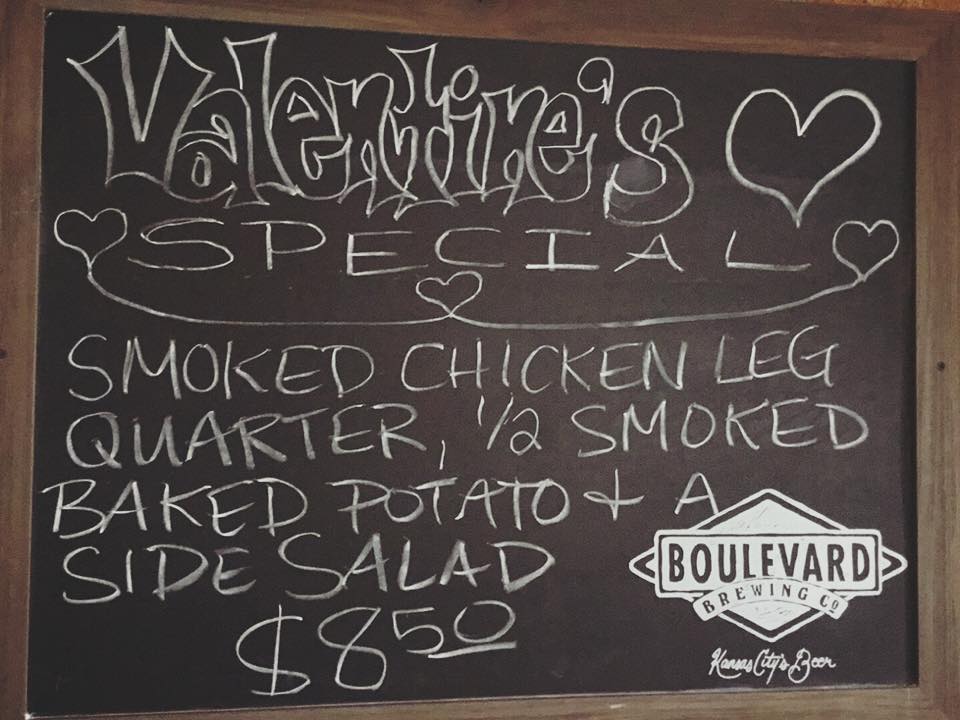 Valentine's
SPECIAL
SMOKED CHICKEN LEG
QUARTER, 1/2 SMOKED
BAKED POTATO & A
SIDE SALAD
$850
BOULEVARD
BREWING Co
Kansas City's Beer